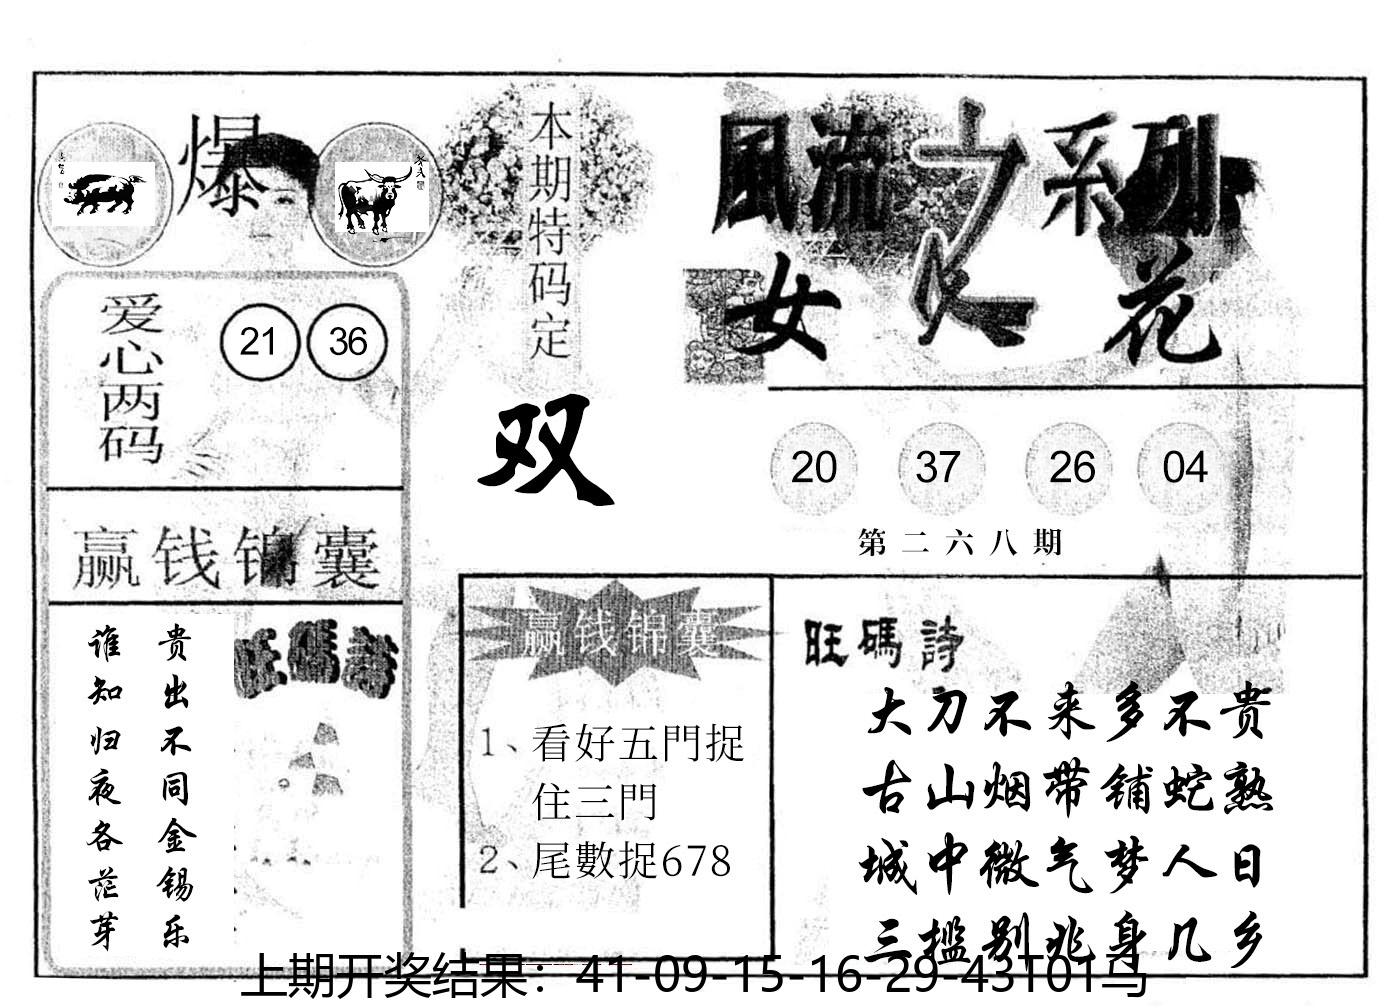 爆
本期特码定
双
風流之系列
女人花
爱心两码
21 36
20 37 26 04
第二六八期
赢钱锦囊
贵出不同金锡乐
谁知归夜各茫芽
旺碼詩
赢钱锦囊
1、看好五門捉
住三門
2、尾數捉678
旺碼詩
大刀不来多不贵
古山烟带铺蛇熟
城中微气梦人日
三搵别兆身几乡
上期开奖结果：41-09-15-16-29-43T01马